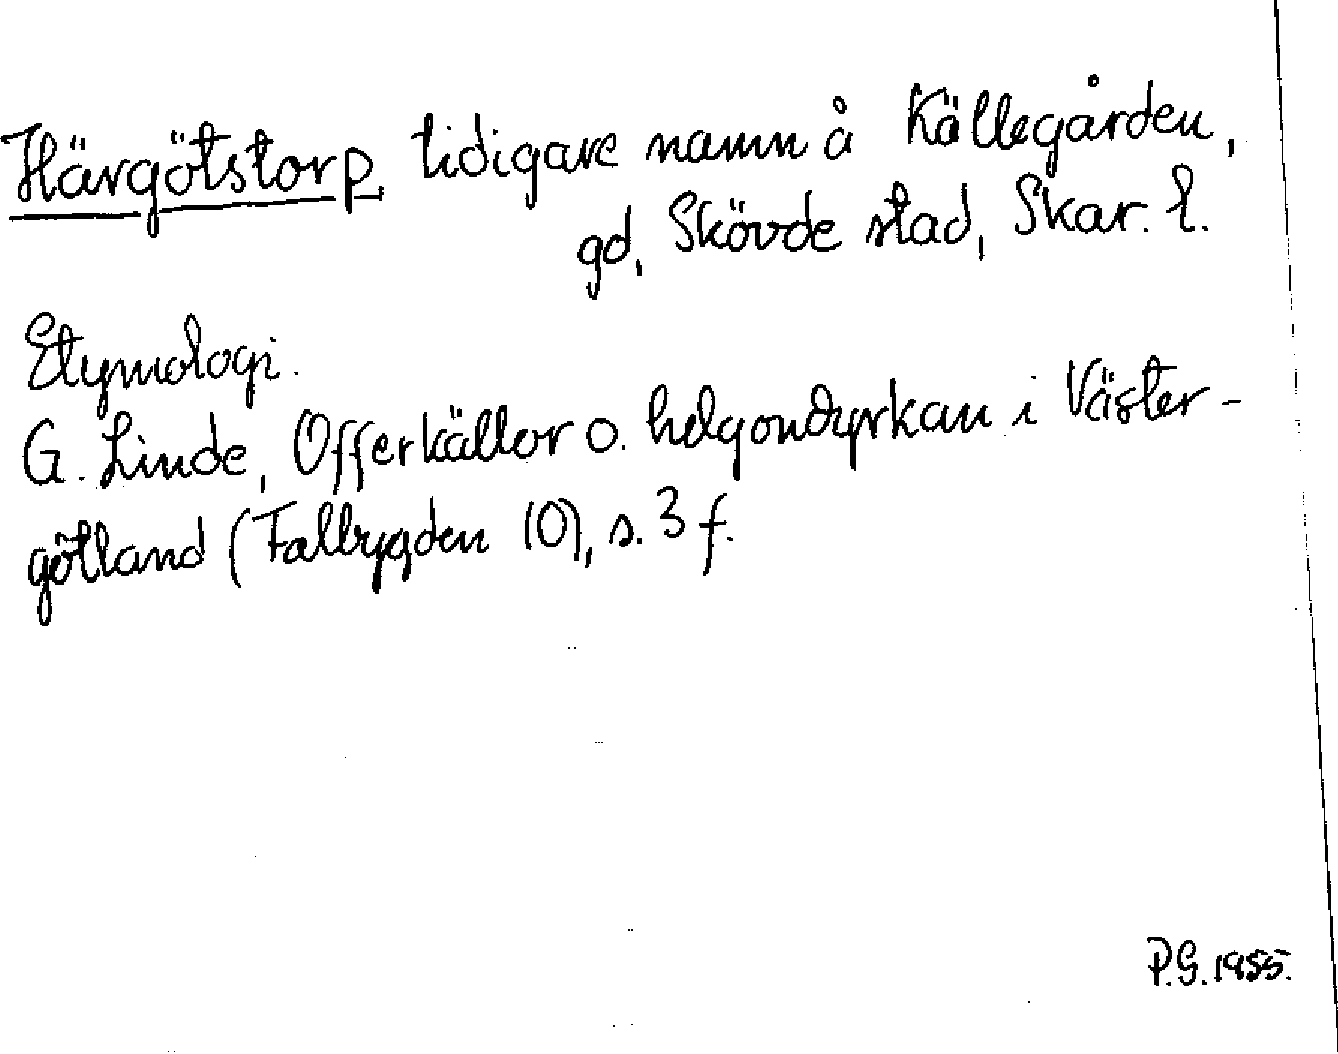 Härgötstorp, tidigare namn å Källegården,
gd, Skövde stad, Skar. l.
Etymologi.
G. Linde, Offerkällor o. helgondyrkan i Väster-
götland (Falbygden 10), s. 3 f.
P.G. 1955.